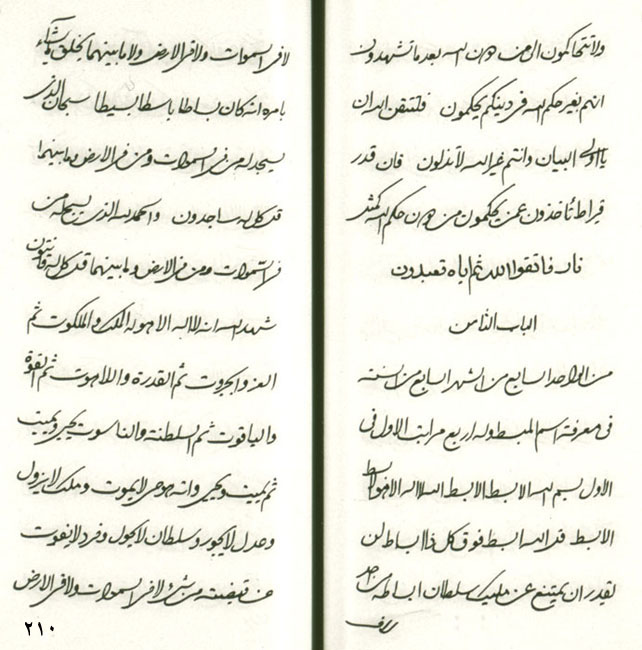 ولا تتحاكمون الى من دون الله بعد ما تشهدون
انهم بغير حكم الله في دينكم يحكمون فلتتقن الله ان
يا اولي البيان وانتم غير الله لا تذلون فان قدر
قراط تأخذون عمن يحكمون من دون حكم الله كمثل
نار فاتقوا الله ثم اياه تعبدون
الباب الثامن
من الواحد السابع من الشهر السابع من السنة
في معرفة اسم المبسط وله اربع مراتب الاول في
الاول بسم الله الابسط الابسط الله لا اله الا هو الابسط
الابسط قل الله ابسط فوق كل ذا ابساط لن
يقدر ان يمتنع عن مليك سلطان ابساطه من احد
لا في السموات ولا في الارض ولا ما بينهما يخلق ما يشاء
بامره انه كان بساطا باسطا بسيطا سبحان الذي
يسجد له من في السموات ومن في الارض وما بينهما
قل كل له ساجدون والحمد لله الذي يسبح له من
في السموات ومن في الارض وما بينهما قل كل له قانتون
شهد الله انه لا اله الا هو له الملك والملكوت ثم
العز والجبروت ثم القدرة واللاهوت ثم القوة
والياقوت ثم السلطنة والناسوت يحيي ويميت
ثم يميت ويحيي وانه هو حي لا يموت وملك لا يزول
وعدل لا يجور وسلطان لا يحول وفرد لا يفوت
عن قبضته من شيء لا في السموات ولا في الارض
٢١٠